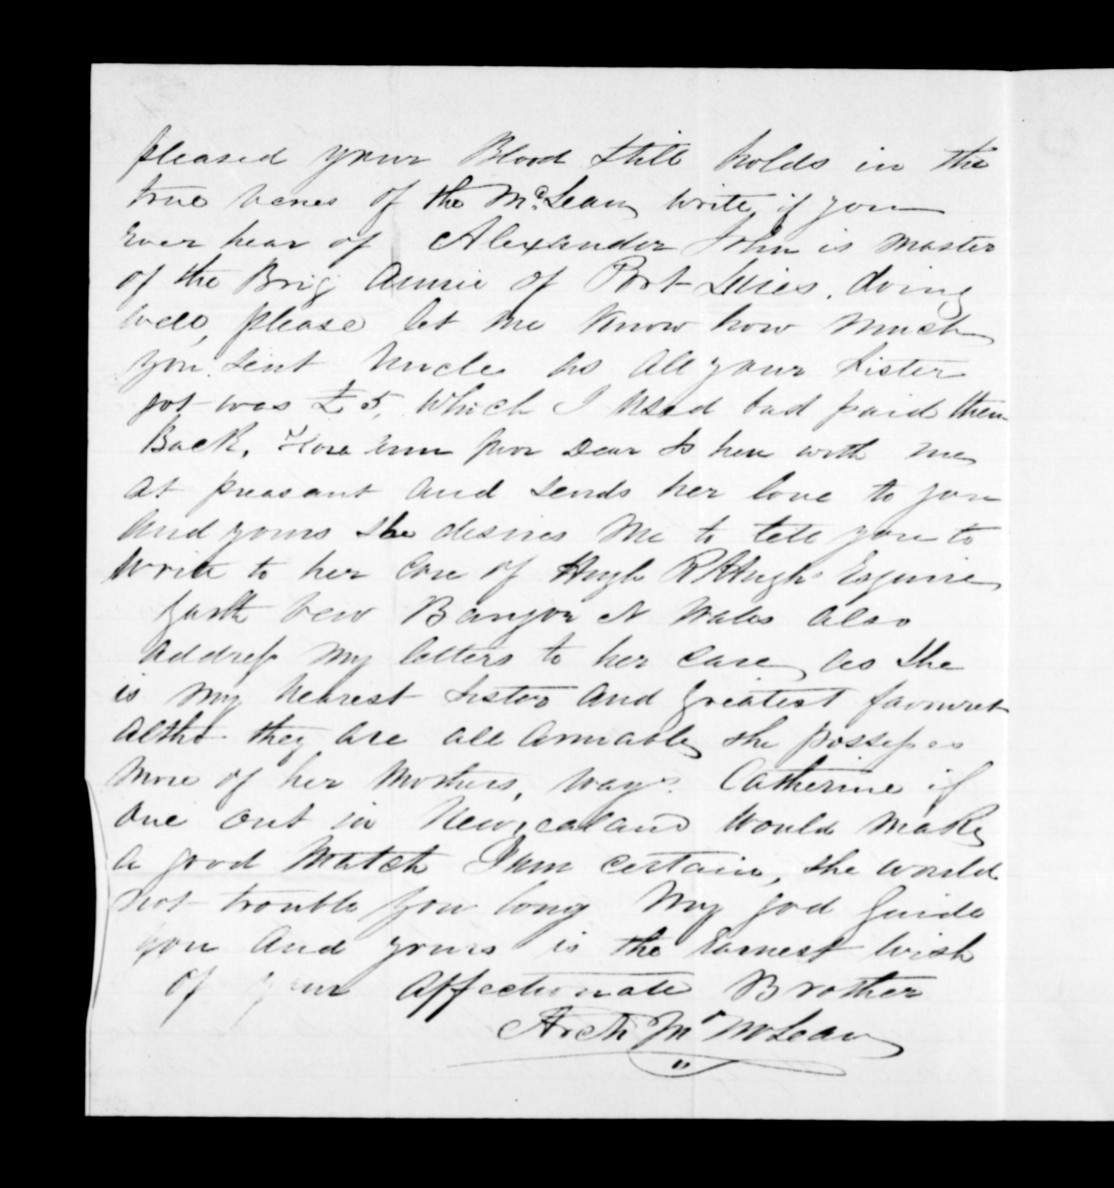 pleased your Blood still holds in the
true vanes of the McLean, write, if you
ever hear of Alexander John is master
of the Brig Annie of Port Luies. doing
well, please let me know how much
you sent Uncle as all your Sister
got was £5, which I used had paid them
Back, Flora Ann poor Dear Is here with me
at preasant and sends her love to you
and yours she desires me to tell you to
write to her Care of Hugh Esquire
Garth Vew Bangor N Wales also
address my letters to her care, as she
is my nearest sister and greatest favouret
altho they are all Amiable, she possesses
more of her Mothers, ways. Catherine if
one out in Newzealand would make
a good Match I am certain, she would
not trouble you long My god guide
you and yours is the Earnest wish
of your affectionate Brother
Archd Jno McLean